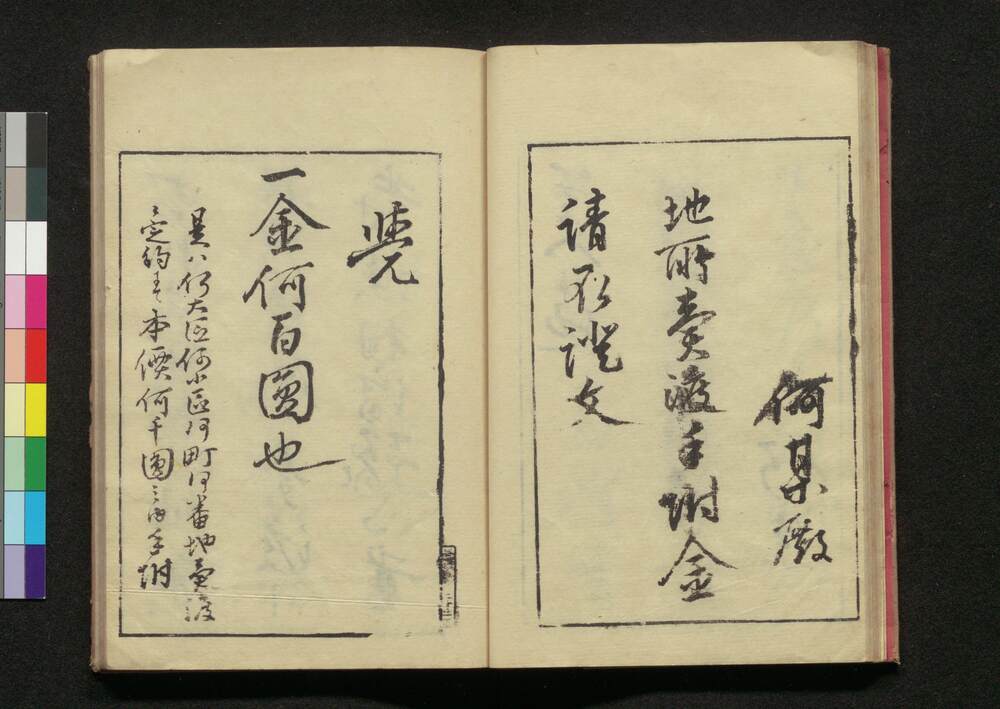 何某殿
地所賣渡手附金
請取證文
覺
一金何百圓也
是ハ何大区何小區何町何番地賣渡
定約本價何千圓之内手附